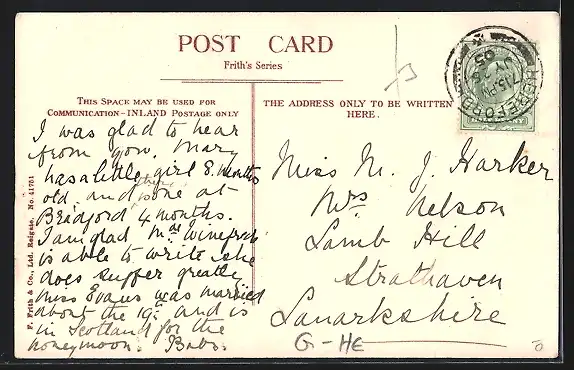 POST CARD
Frith's Series
THIS SPACE MAY BE USED FOR
COMMUNICATION-INLAND POSTAGE ONLY
THE ADDRESS ONLY TO BE WRITTEN
HERE.
I was glad to hear
from you. Mary
has a little girl 8 months
old, and there is one at
4 months.
I am glad
is able to write she
does suffer greatly
Miss Evans was married
about the 19th and is
in Scotland for the
honeymoon. Babs.
Miss M. J. Harker
Mrs Nelson
Lamb Hill
Strathaven
Lanarkshire
G-HE
F. Frith & Co., Ltd. Reigate. No. 41751
HEREFORD
7.15 PM
05